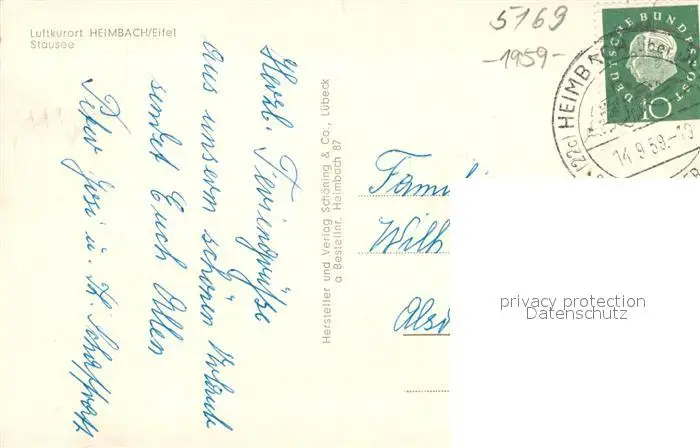 Luftkurort HEIMBACH/Eifel
Stausee
5169
-1959-
Herzl. Feriengrüße
aus unserm schönen Urlaub
sendet Euch Allen
Peter Josi u. Th.
Hersteller und Verlag Schöning & Co., Lübeck
a Bestellnr. Heimbach 87
DEUTSCHE BUNDESPOST
10
(22c) HEIMB
über
14.9.59.-18
Famil
Wilh
Als
privacy protection
Datenschutz